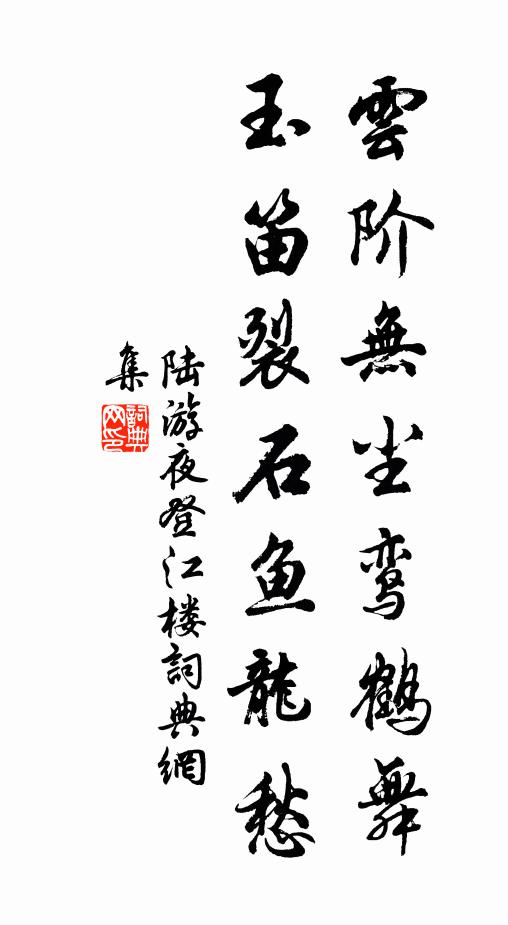 雲阶無尘鸾鹤舞
玉笛裂石鱼龍愁
陆游夜登江楼詞典網
集
詞典
网印